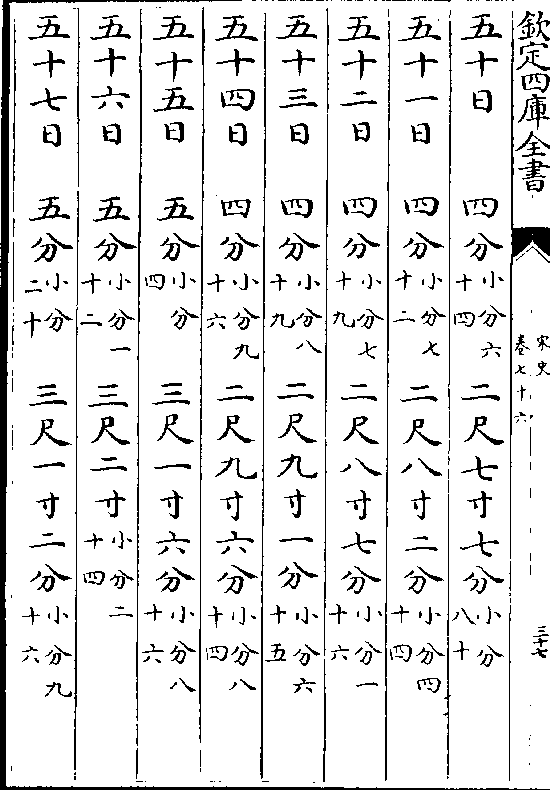 欽定四庫全書
宋史
卷七十六
三十七
五十日 四分小分六十四 二尺七寸七分小分八十
五十一日 四分小分七十二 二尺八寸二分小分四十四
五十二日 四分小分七十九 二尺八寸七分小分一十六
五十三日 四分小分八十九 二尺九寸一分小分六十五
五十四日 四分小分九十六 二尺九寸六分小分八十四
五十五日 五分小分四 三尺一寸六分小分八十六
五十六日 五分小分一十二 三尺二寸小分二十四
五十七日 五分小分二十 三尺一寸二分小分九十六